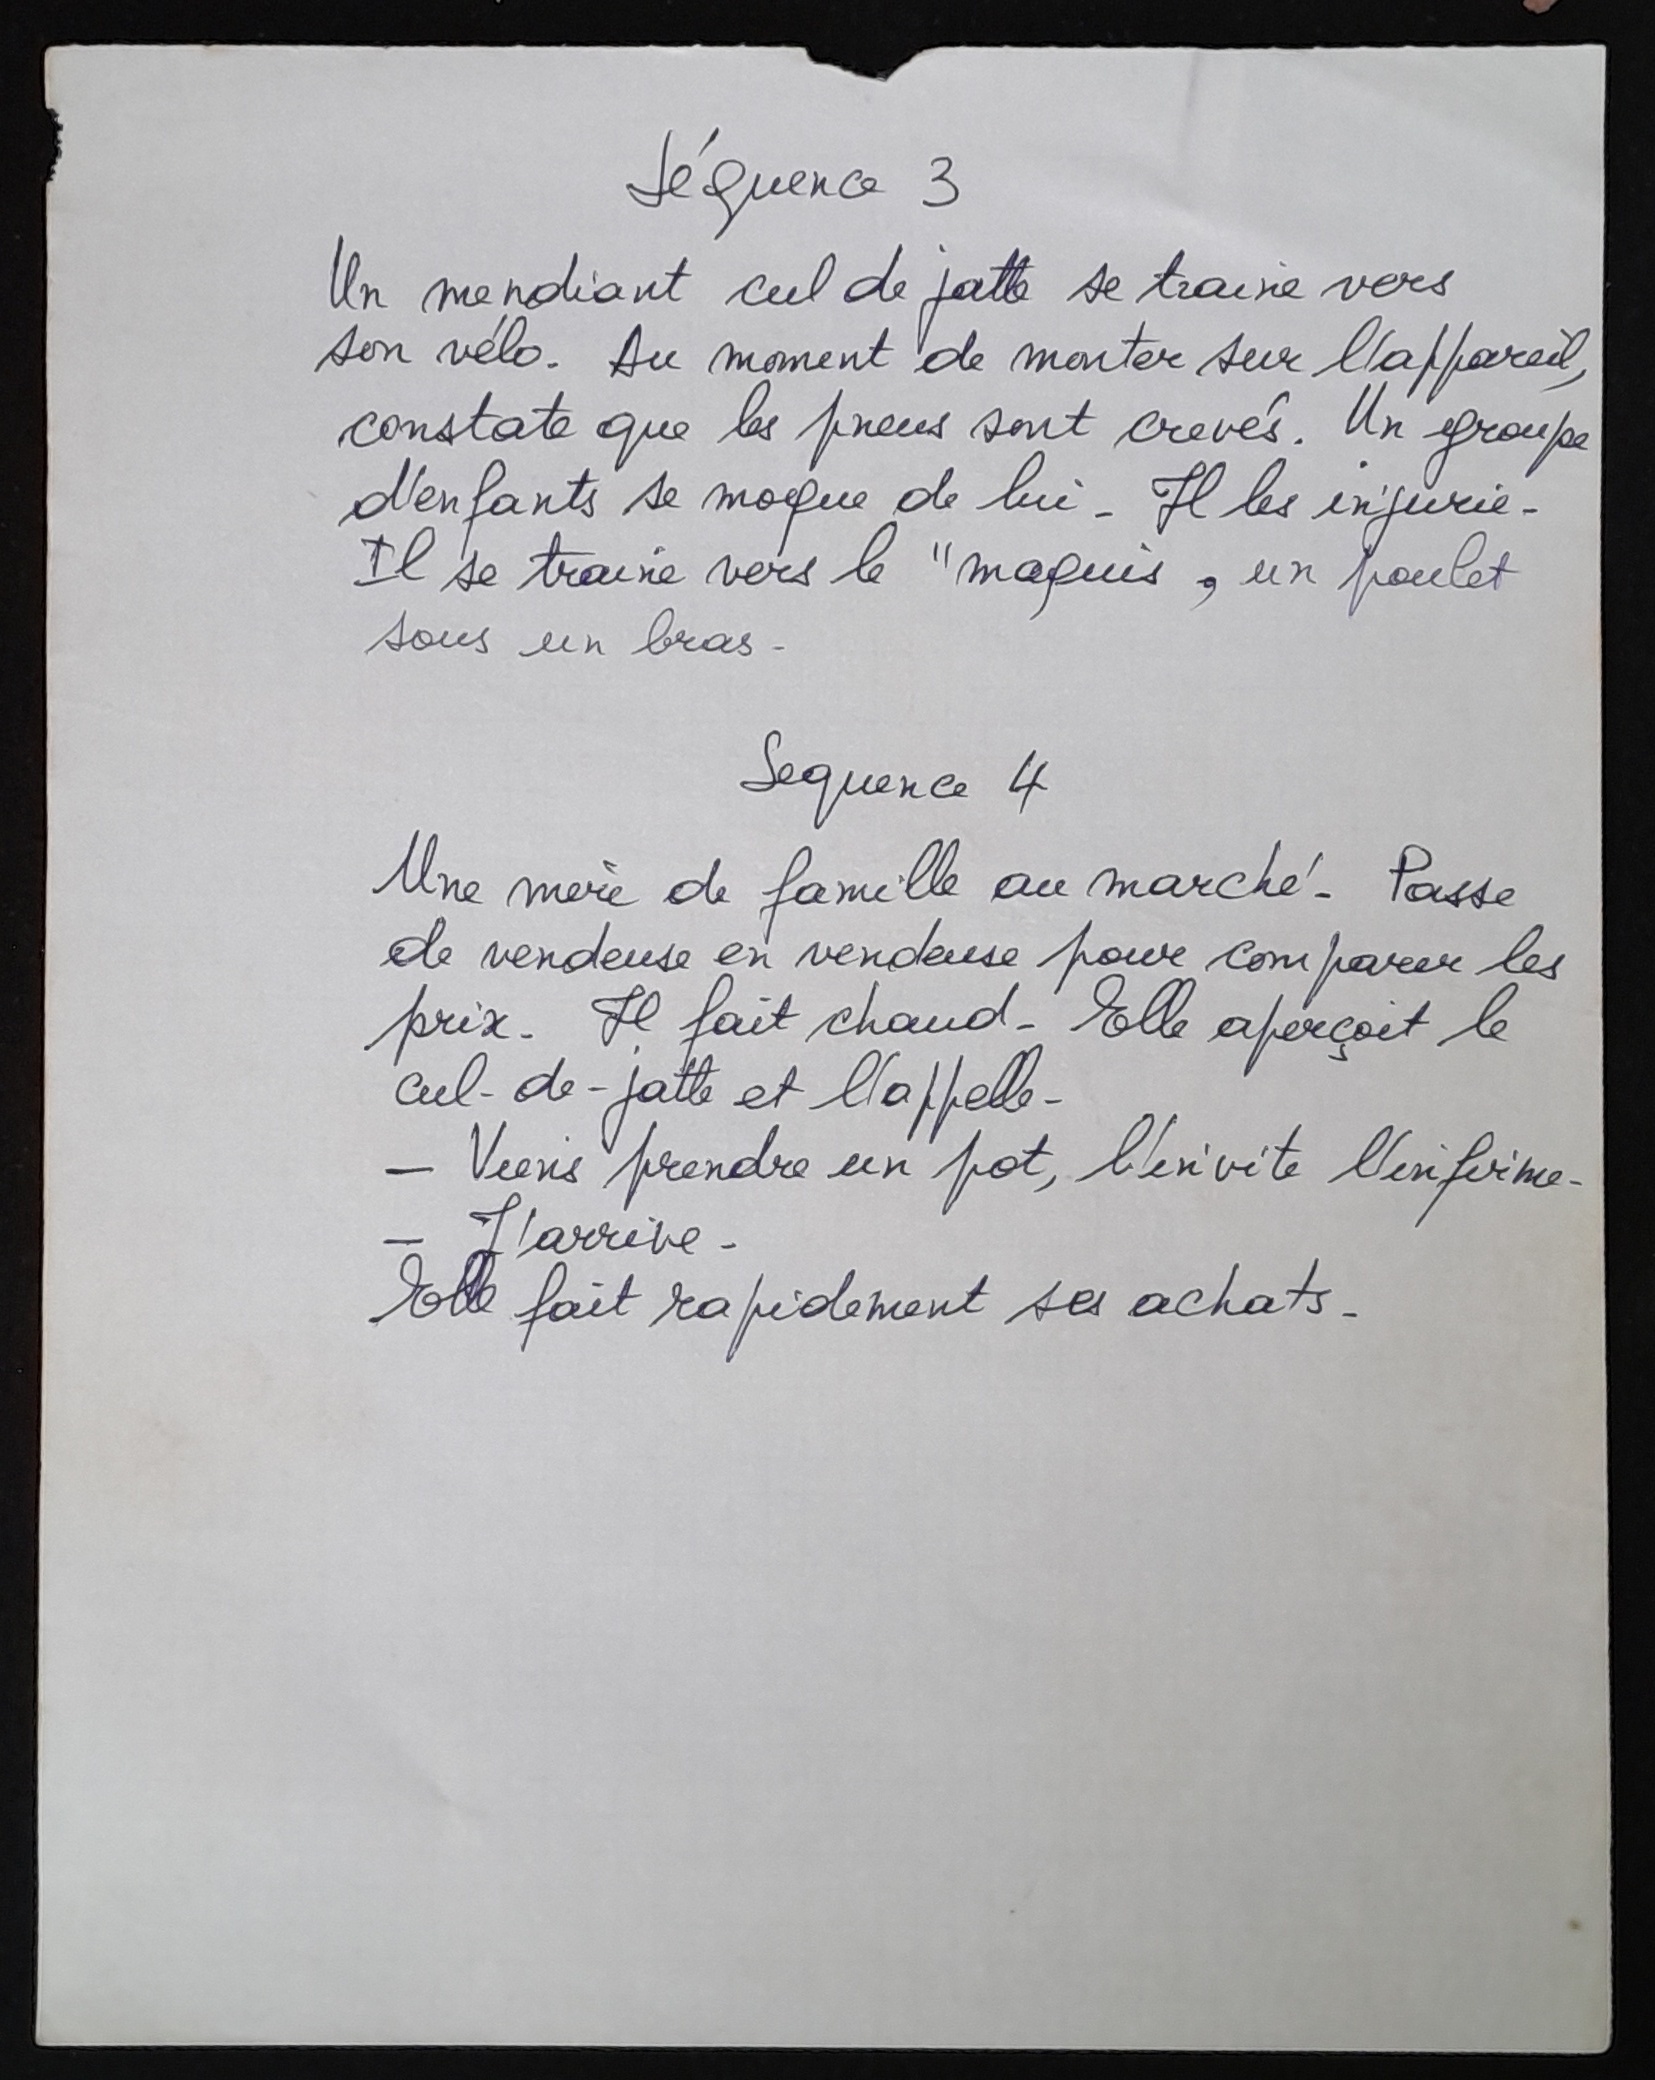 Séquence 3
Un mendiant cul de jatte se traine vers
son vélo. Au moment de monter sur l'appareil,
constate que les pneus sont crevés. Un groupe
d'enfants se moque de lui - Il les injurie -
Il se traine vers le "maquis, un poulet
sous un bras -
Sequence 4
Une mère de famille au marché - Passe
de vendeuse en vendeuse pour comparer les
prix - Il fait chaud - Elle aperçoit le
cul-de-jatte et l'appelle -
— Viens prendre un pot, l'invite l'infirme -
— J'arrive -
Elle fait rapidement ses achats -